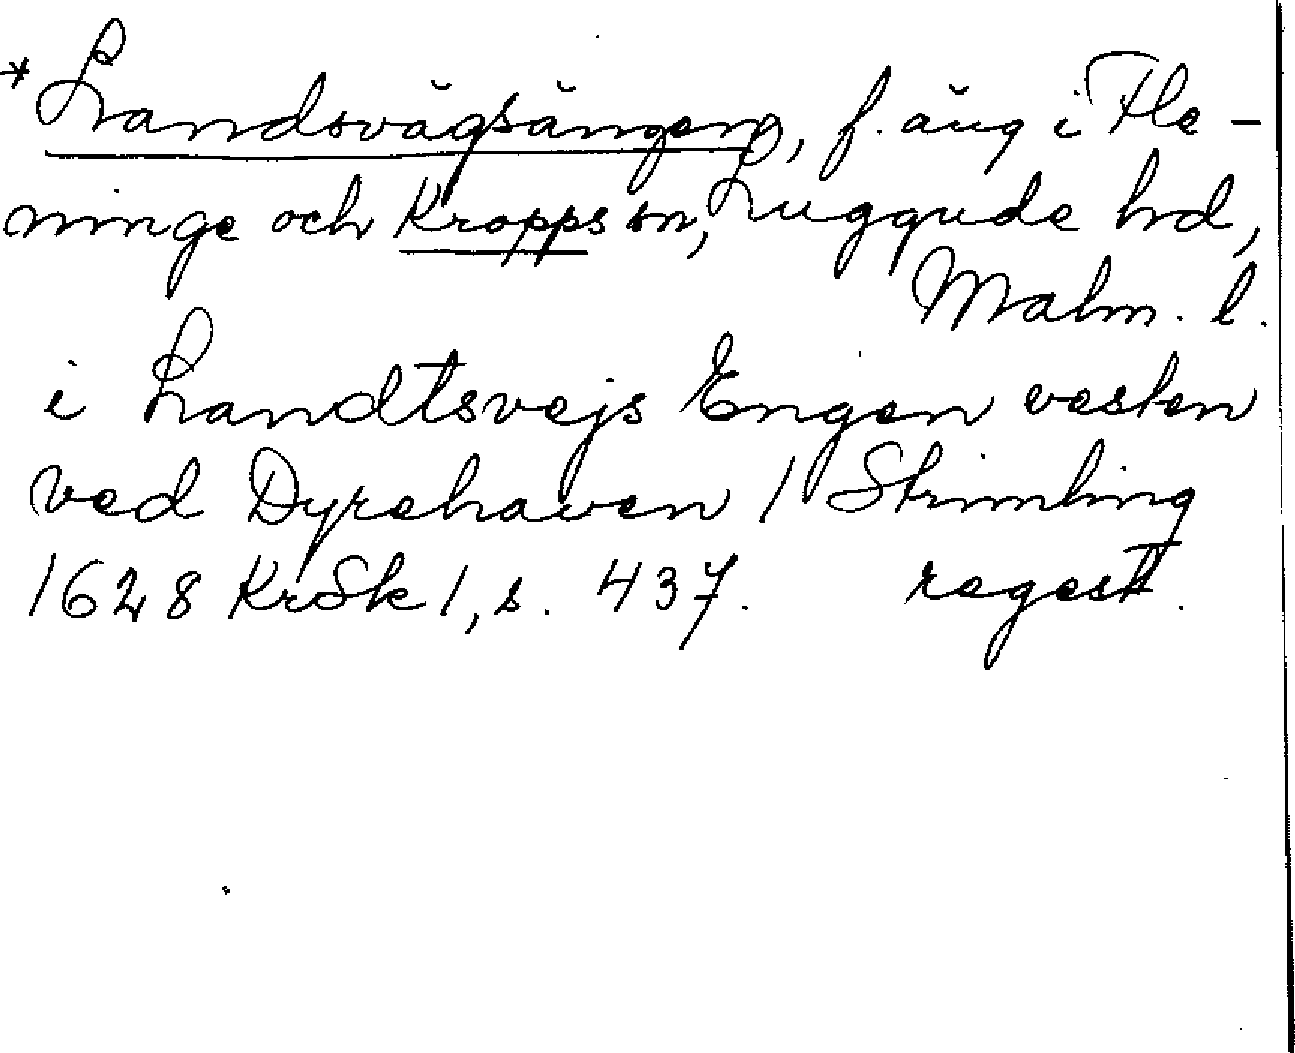 *Landsvägsängen, f. äng i Fle-
ninge och Kropps sn, Luggude hd,
Malm. l.
i Landtsvejs Engen vesten
ved Dyrehaven / Strimling
1628 KrSk 1, s. 437. regest.